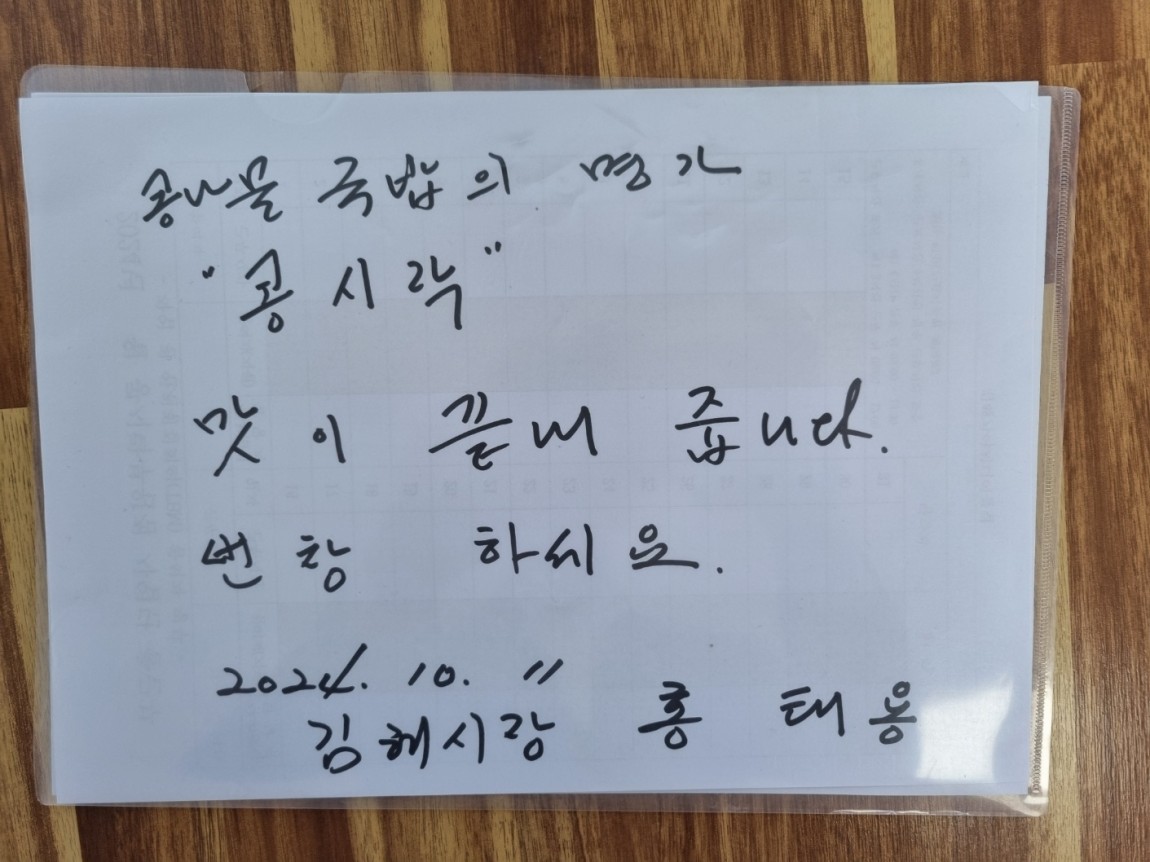 콩나물 국밥의 명가
"콩시락"
맛이 끝내 줍니다.
번창 하세요.
2024. 10. 11
김해시장 홍태용